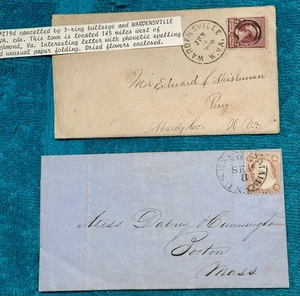 #219d cancelled by 3-ring bullseye and WARDENSVILLE
VA. cds. This town is located 145 miles west of
Richmond, Va. Interesting letter with phonetic spelling
and unusual paper folding. Dried flowers enclosed.
WARDENSVILLE
JAN
W.VA.
Mr Edward L Heishman
Perry
Hardy Co W Va
SEP
8
Mess Dabney & Cunningham
Boston
Mass